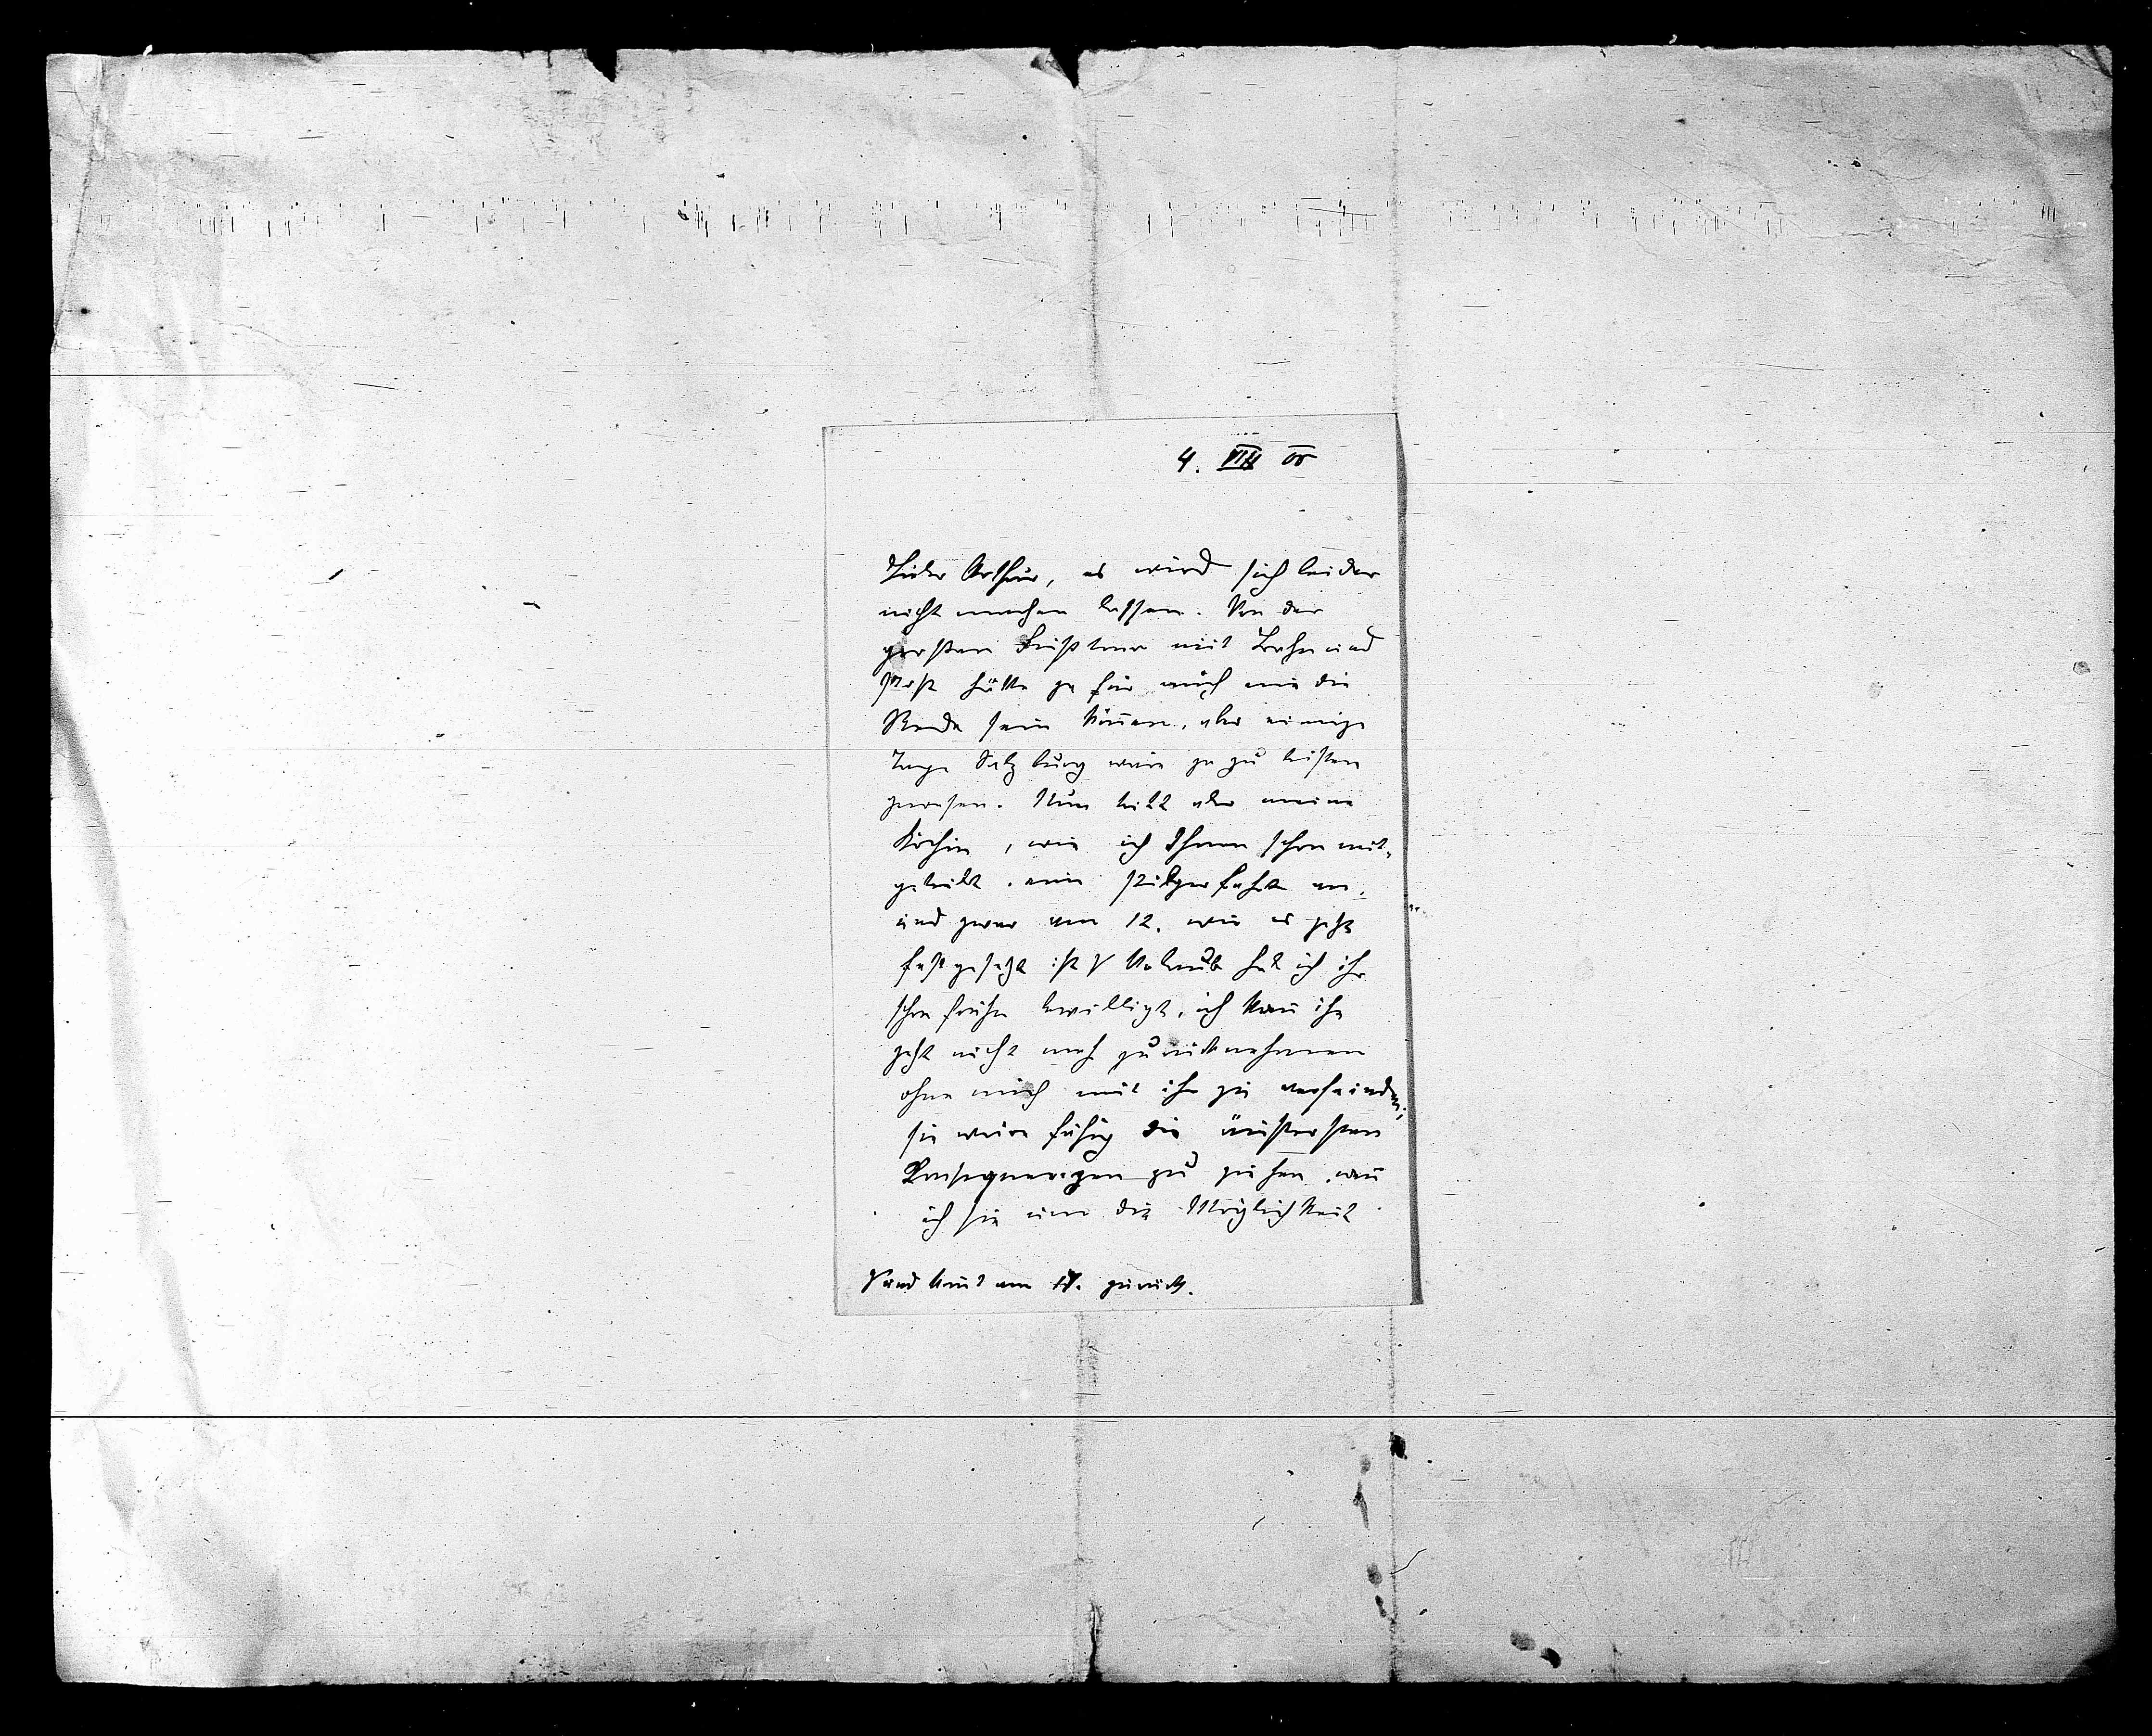 4. VIII 05
Lieber Arthur, es wird sich leider
nicht machen lassen. Von der
großen Fußtour mit Bahn und
Post hätte ja für mich nie die
Rede sein können, aber einige
Tage Salzburg wäre ja zu leisten
gewesen. Nun tritt aber meine
Köchin, wie ich Ihnen schon mit-
geteilt, eine Pilgerfahrt an,
und zwar am 12. wie es jetzt
festgesetzt ist Urlaub hab ich ihr
schon früher bewilligt, ich kann ihn
jetzt nicht mehr zurücknehmen
ohne mich mit ihr zu verfeinden;
sie wäre fähig die äußersten
Konsequenzen zu ziehen, wenn
ich sie um die Möglichkeit
und kommt am 17. zurück.